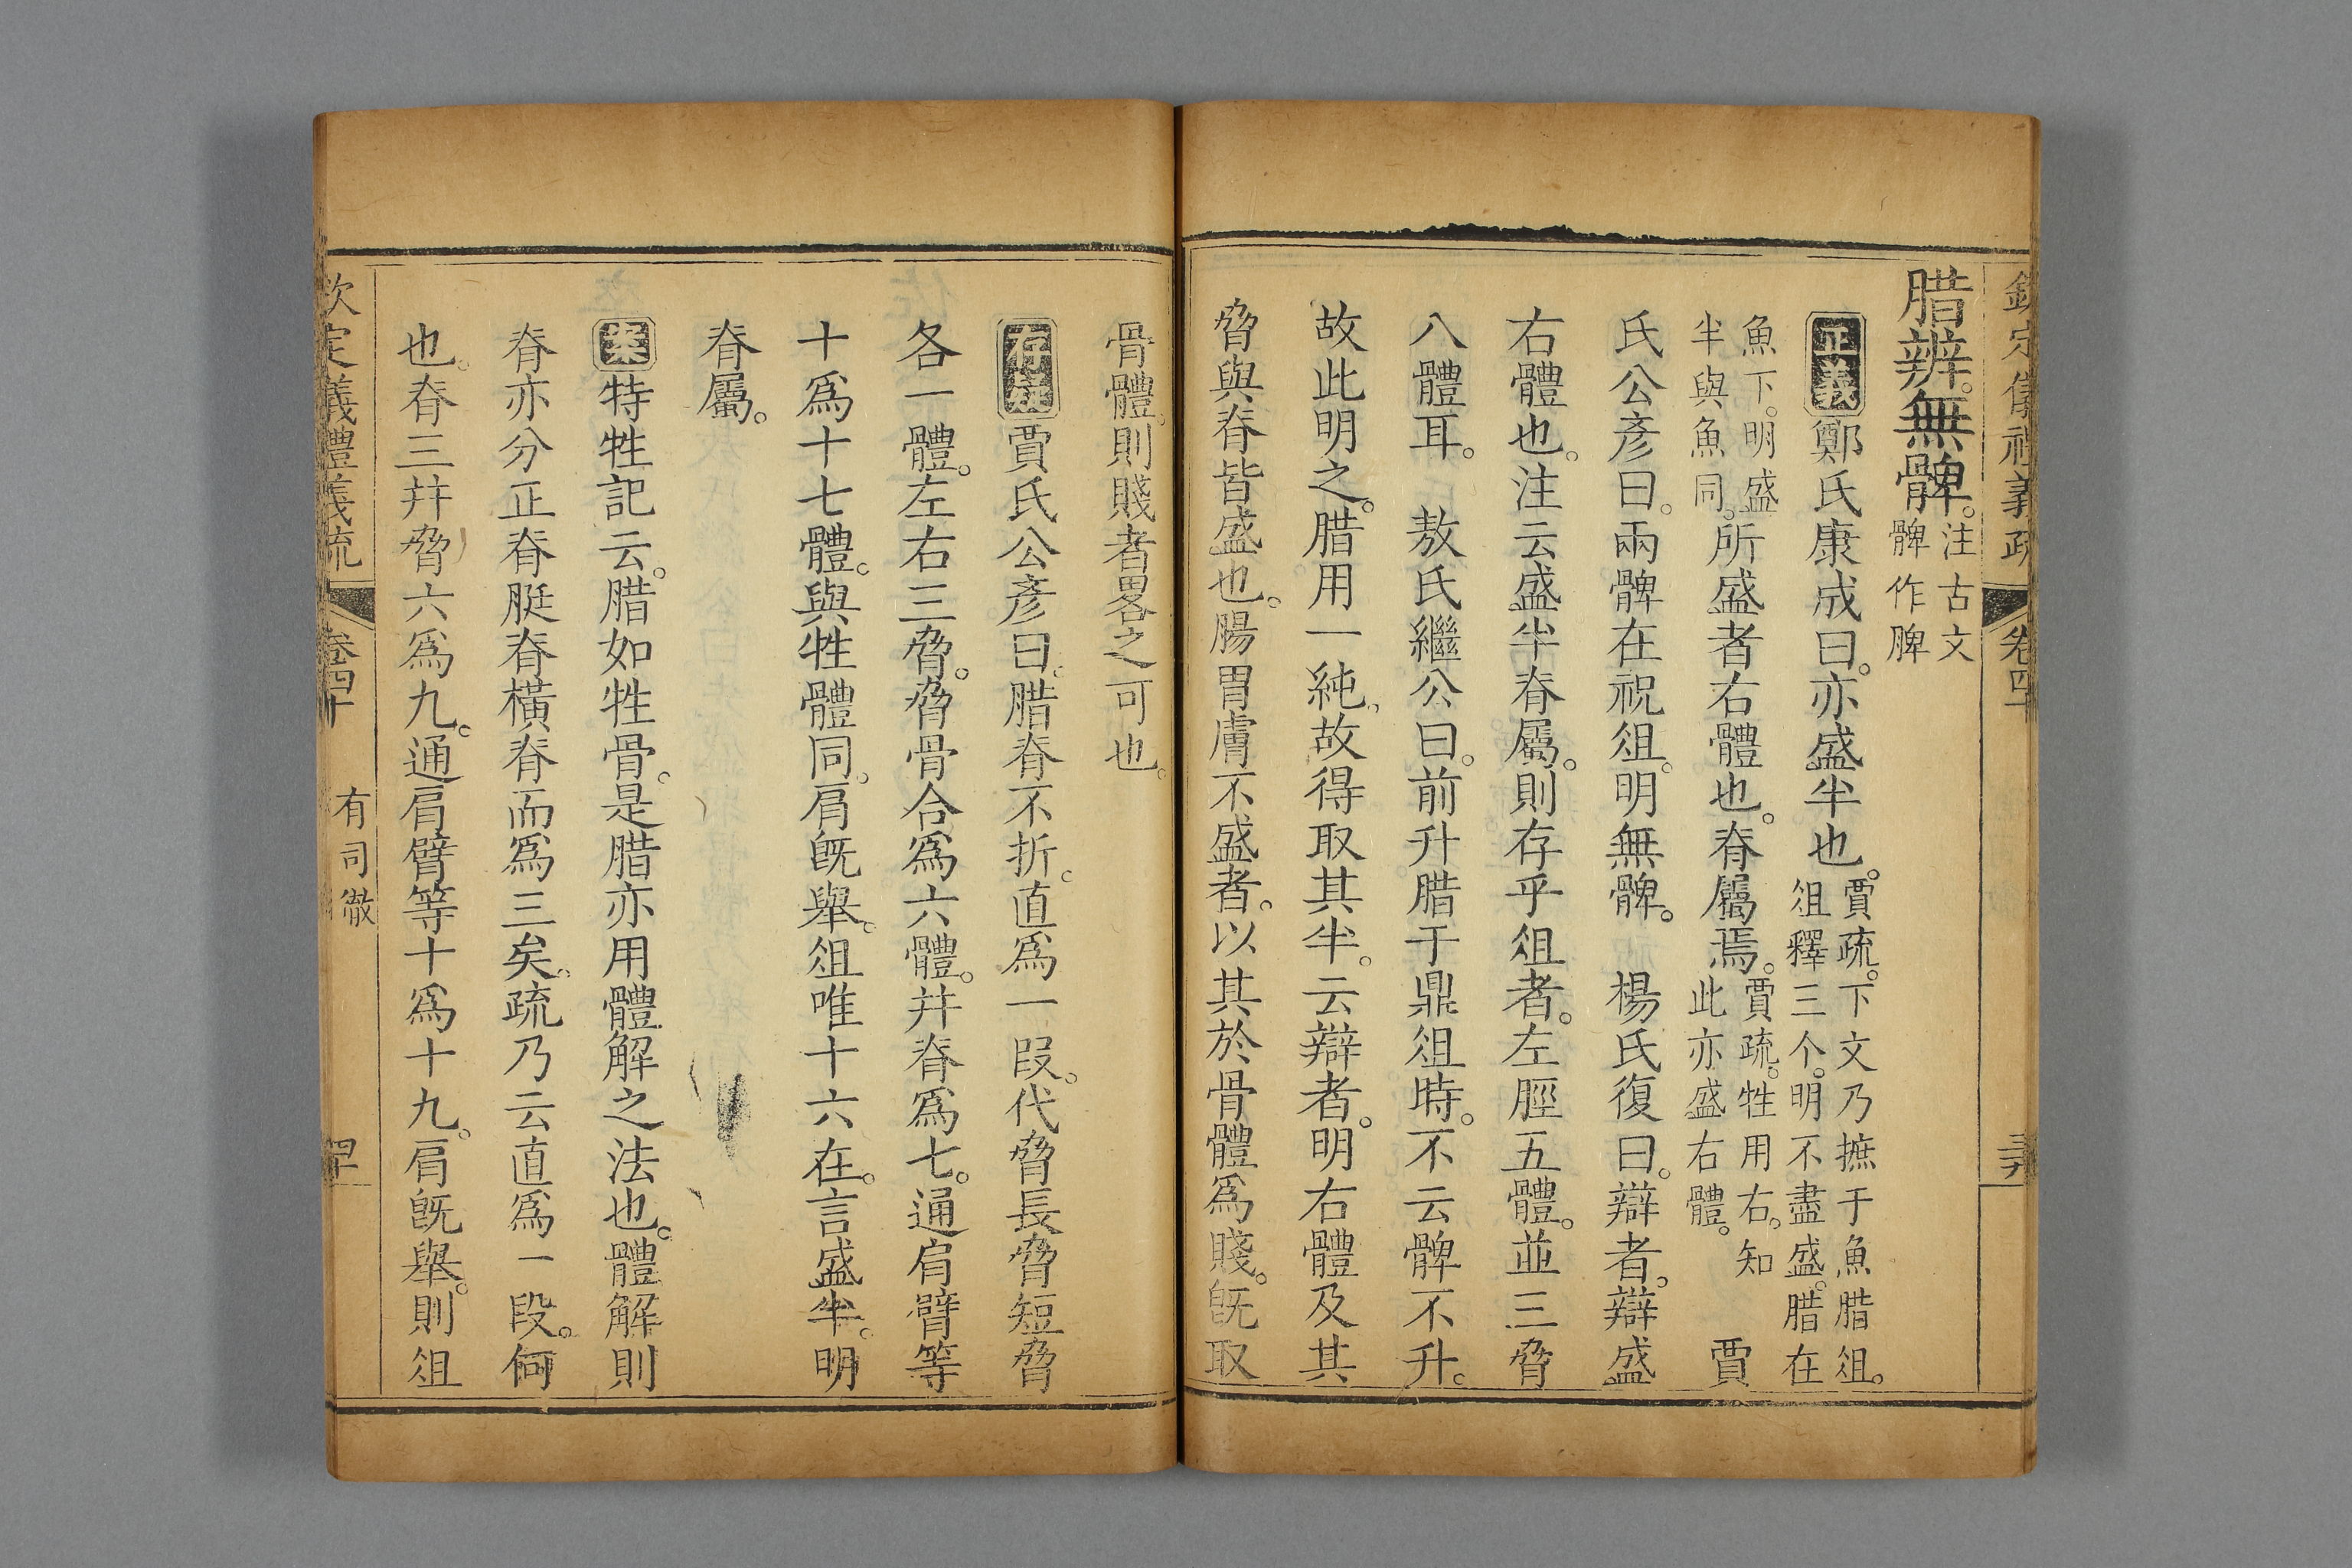 欽定儀禮義疏 卷四十 三九
腊辨。無髀。注古文髀作脾
正義鄭氏康成曰。亦盛半也。賈疏。下文乃摭于魚腊俎。俎釋三个。明不盡盛。腊在
魚下。明盛半與魚同。所盛者右體也。脊屬焉。賈疏。牲用右。知此亦盛右體。 賈
氏公彥曰。兩髀在祝俎。明無髀。 楊氏復曰。辯者。辯盛
右體也。注云盛半脊屬。則存乎俎者。左脛五體。並三脅
八體耳。 敖氏繼公曰。前升腊于鼎俎時。不云髀不升。
故此明之。腊用一純。故得取其半。云辯者。明右體及其
脅與脊皆盛也。腸胃膚不盛者。以其於骨體爲賤。旣取
骨體。則賤者畧之可也。
存疑賈氏公彥曰。腊脊不折。直爲一段。代脅長脅短脅
各一體。左右三脅。脅骨合爲六體。并脊爲七。通肩臂等
十爲十七體。與牲體同。肩旣舉。俎唯十六在。言盛半。明
脊屬。
案特牲記云。腊如牲骨。是腊亦用體解之法也。體解則
脊亦分正脊脡脊橫脊而爲三矣。疏乃云直爲一段。何
也。脊三并脅六爲九。通肩臂等十爲十九。肩旣舉。則俎
欽定儀禮義疏 卷四十 有司徹 四十